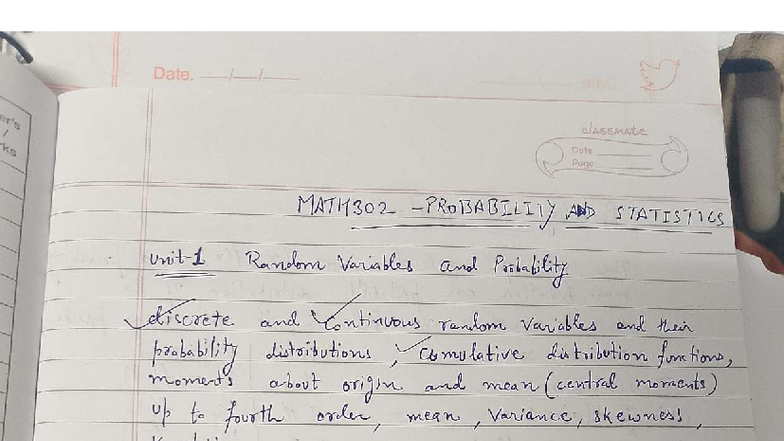 er's
/
ks
Date. __/__/__
classmate
Date
Page
MATH302 - PROBABILITY AND STATISTICS
Unit-1 Random Variables and Probability
discrete and Continuous random variables and their
probability distributions, Comulative distribution functions,
moments about origin and mean (central moments)
up to fourth order, mean, Variance, skewness,